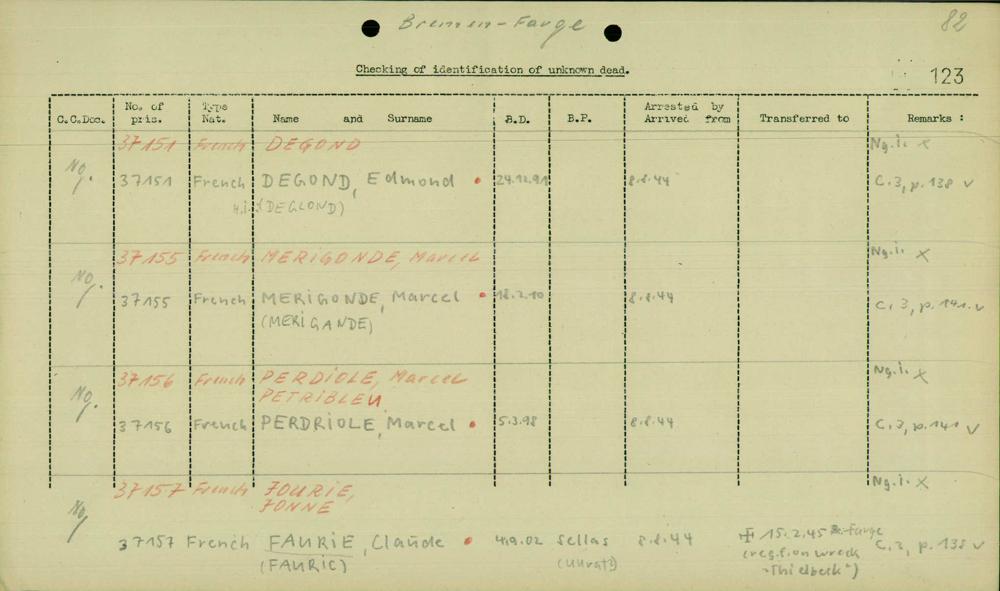 Bremen-Farge
82
Checking of identification of unknown dead.
123
C.C.Doc. No. of pris. Type Nat. Name and Surname B.D. B.P. Arrested by Arrived from Transferred to Remarks :
37151 French DEGOND Ng.i. x
Ng. 37151 French DEGOND, Edmond 24.12.91 8.8.44 C.3, p.138 v
(DEGLOND)
37155 French MERIGONDE, Marcel Ng.i. x
Ng. 37155 French MERIGONDE, Marcel 18.2.10 8.8.44 C.3, p.141 v
(MERIGANDE)
37156 French PERDIOLE, Marcel Ng.i. x
PETRIBLEU
Ng. 37156 French PERDRIOLE, Marcel 5.3.98 8.8.44 C.3, p.141 v
37157 French FOURIE, Ng.i. x
FONNE
Ng. 37157 French FAURIE, Claude 4.9.02 Sellas 8.8.44 15.2.45 Farge C.3, p.138 v
(FAURIC) (reg. f. on wreck
"Thielbeck")